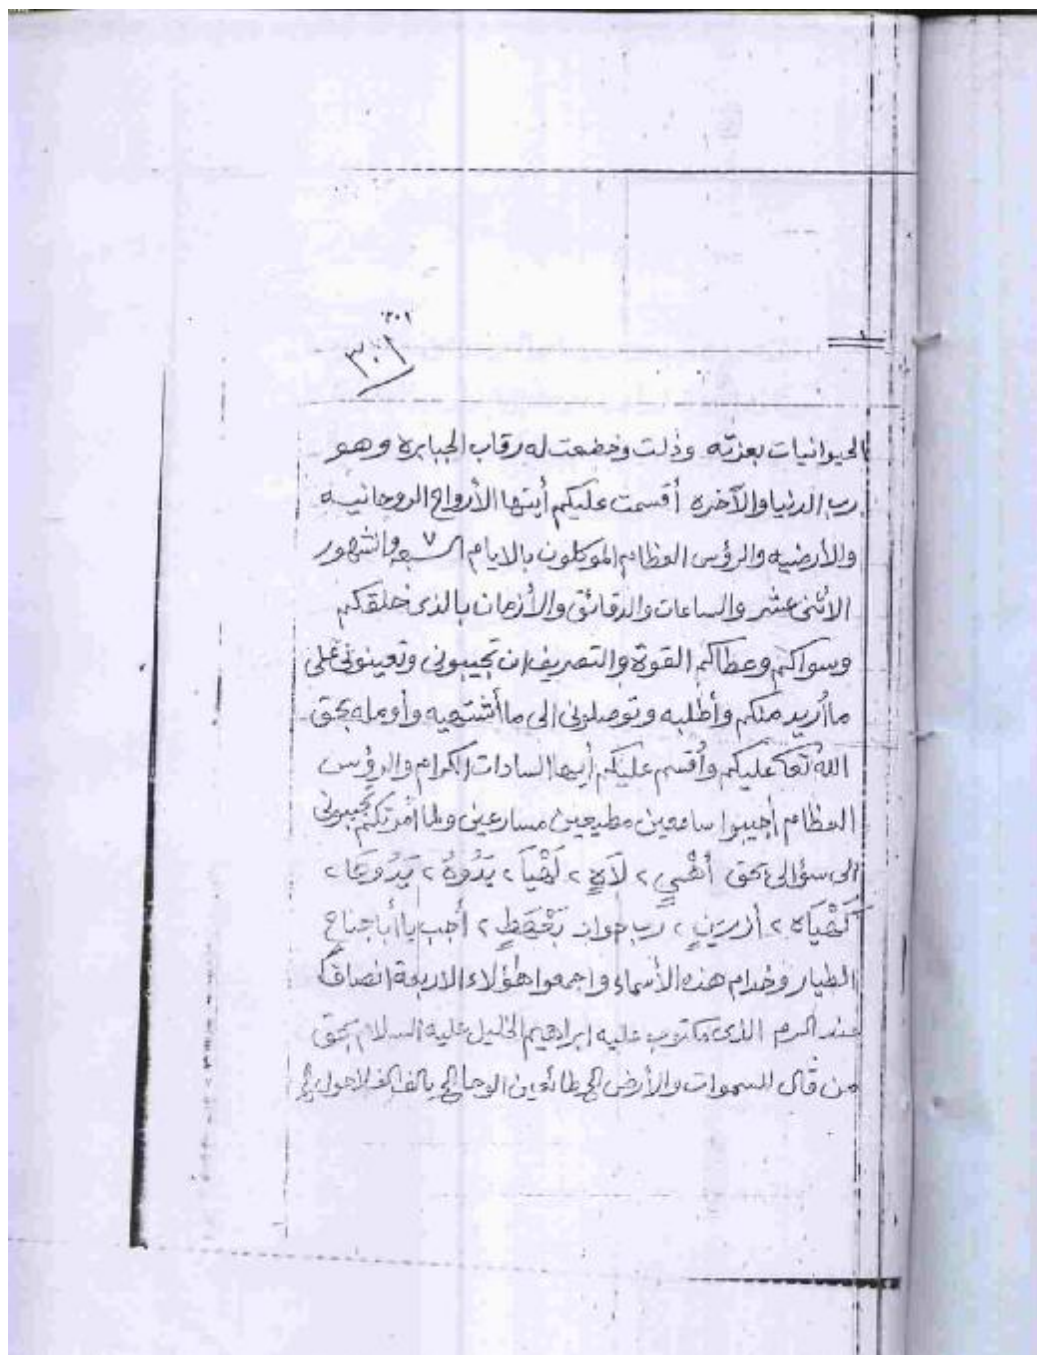 ٣٠١
٣٠١
الحيوانيات بعزته وذلت وخضعت له رقاب الجبابره وهو
رب الدنيا والآخره أقسمت عليكم أيتها الأرواح الروحانيه
والأرضيه والرؤس العظام الموكلون بالايام السبعه ٧ والشهور
الاثنى عشر والساعات والدقائق والأزمان بالذى خلقكم
وسواكم وعطاكم القوة والتصريف ان تجيبونى وتعينونى على
ما أريد منكم وأطلبه وتوصلونى الى ما أشتهيه وأومله بحق
الله تعا عليكم وأقسم عليكم أيها السادات الكرام والرؤس
العظام أجيبوا سامعين مطيعين مسارعين ولما أمرتكم تجيبونى
الى سؤالى بحق ٢ لَاهٍ ٢ ٢ ٢ ٢
٢ ٢ رب ٢ أجب يا أبا جناح
الطيار وخدام هذه الأسماء واجمعوا هؤلاء الاربعة انصاف
عند الدرم الذى مكتوب عليه ابراهيم الخليل عليه السلام بحق
من قال للسموات والأرض طائعين الوحا بالف الف لاحول